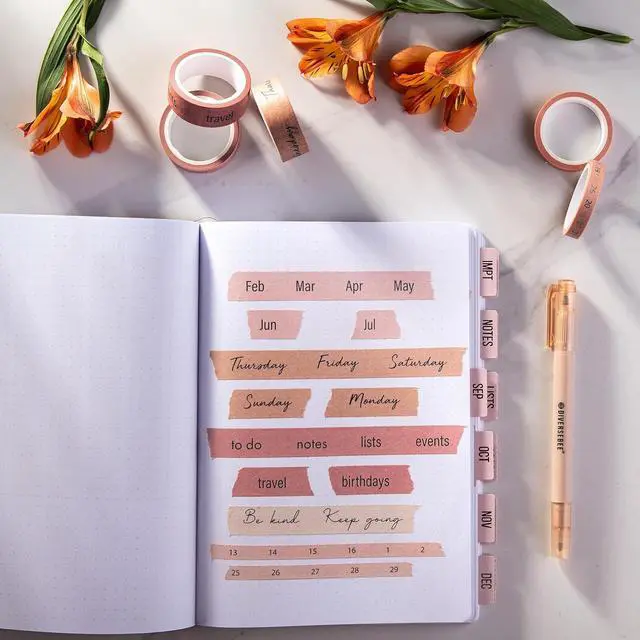 travel
IMPT
NOTES
LISTS
SEP
OCT
NOV
DEC
Feb Mar Apr May
Jun Jul
Thursday Friday Saturday
Sunday Monday
to do notes lists events
travel birthdays
Be kind Keep going
13 14 15 16 1 2
25 26 27 28 29
DIVERSEBEE